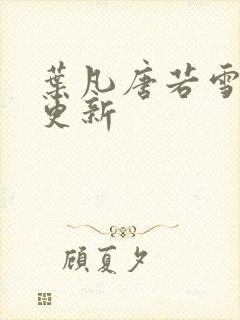 葉凡唐若雪
更新
顾夏夕